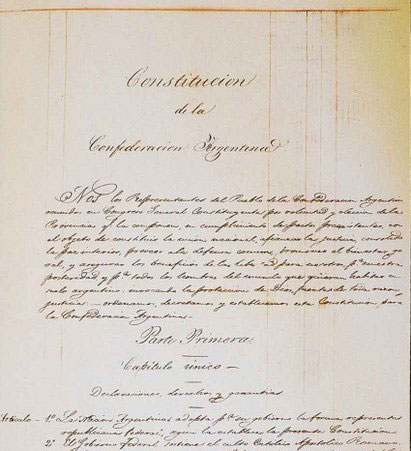 Constitucion
de la
Confederacion Argentina
Nos los Representantes del Pueblo de la Confederacion Argentina
reunidos en Congreso General Constituyente por voluntad y eleccion de las
Provincias q.e la componen, en cumplimiento de pactos preexistentes, con
el objeto de constituir la union nacional, afianzar la justicia, consolidar
la paz interior, proveer a la defensa comun, promover el bienestar ge-
ral, y asegurar los beneficios de la libertad para nosotros, p.a nuestra
posteridad, y p.a todos los hombres del mundo que quieran habitar en
suelo argentino: invocando la proteccion de Dios, fuente de toda razon y
justicia: ordenamos, decretamos y establecemos esta Constitucion, para
la Confederacion Argentina.
Parte Primera
Capitulo único
Declaraciones, derechos y garantias
Articulo 1.º La Nacion Argentina adopta p.a su gobierno la forma representativa
republicana federal, segun la establece la presente Constitucion.
2.º El Gobierno Federal sostiene el culto Catolico Apostolico Romano.